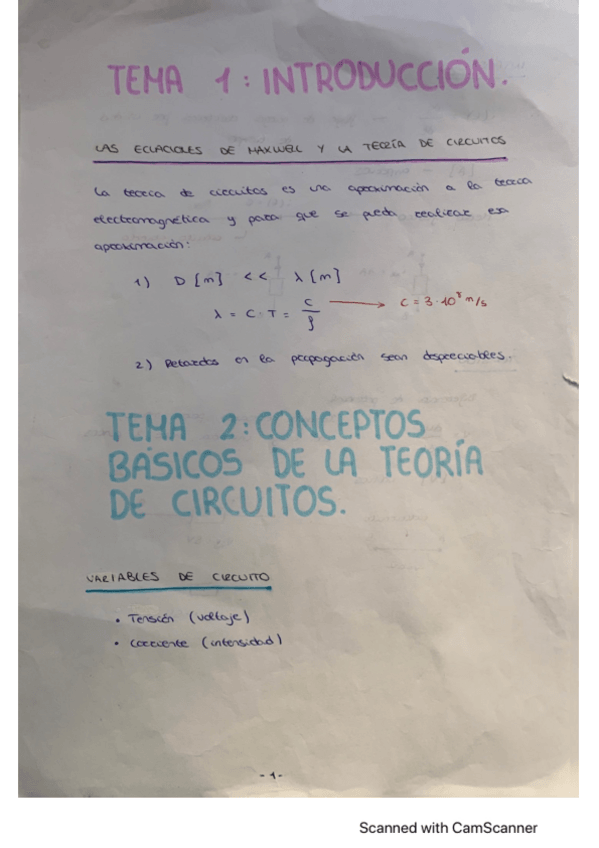 TEMA 1: INTRODUCCIÓN.
LAS ECUACIONES DE MAXWELL Y LA TEORÍA DE CIRCUITOS
La teoría de circuitos es una aproximación a la teoría
electromagnética y para que se pueda realizar esa
aproximación:
1) D [m] << λ [m]
λ = C · T = C/f → C = 3 · 10⁸ m/s
2) Retardos en la propagación sean despreciables.
TEMA 2: CONCEPTOS
BÁSICOS DE LA TEORÍA
DE CIRCUITOS.
VARIABLES DE CIRCUITO
• Tensión (voltaje)
• Corriente (intensidad)
- 1 -
Scanned with CamScanner